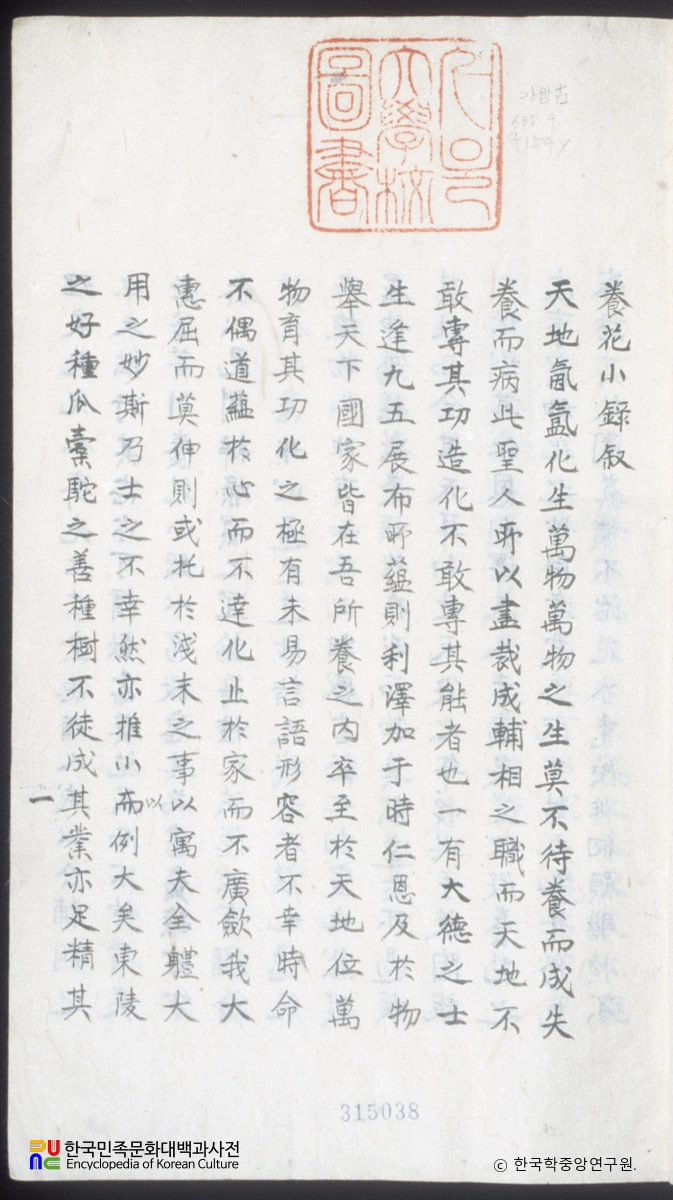 서울
大學校
圖書
가람古
養花小錄叙
天地氤氳化生萬物萬物之生莫不待養而成失
養而病此聖人所以盡裁成輔相之職而天地不
敢專其功造化不敢專其能者也一有大德之士
生逢九五展布所蘊則利澤加于時仁恩及於物
舉天下國家皆在吾所養之内卒至於天地位萬
物育其功化之極有未易言語形容者不幸時命
不偶道蘊於心而不達化止於家而不廣歛我大
惠屈而莫伸則或托於淺末之事以寓夫全軆大
用之妙斯乃士之不幸然亦推小而以例大矣東陵
之好種瓜槖駝之善種樹不徒成其業亦足精其
一
315038
한국민족문화대백과사전
Encyclopedia of Korean Culture
ⓒ 한국학중앙연구원.